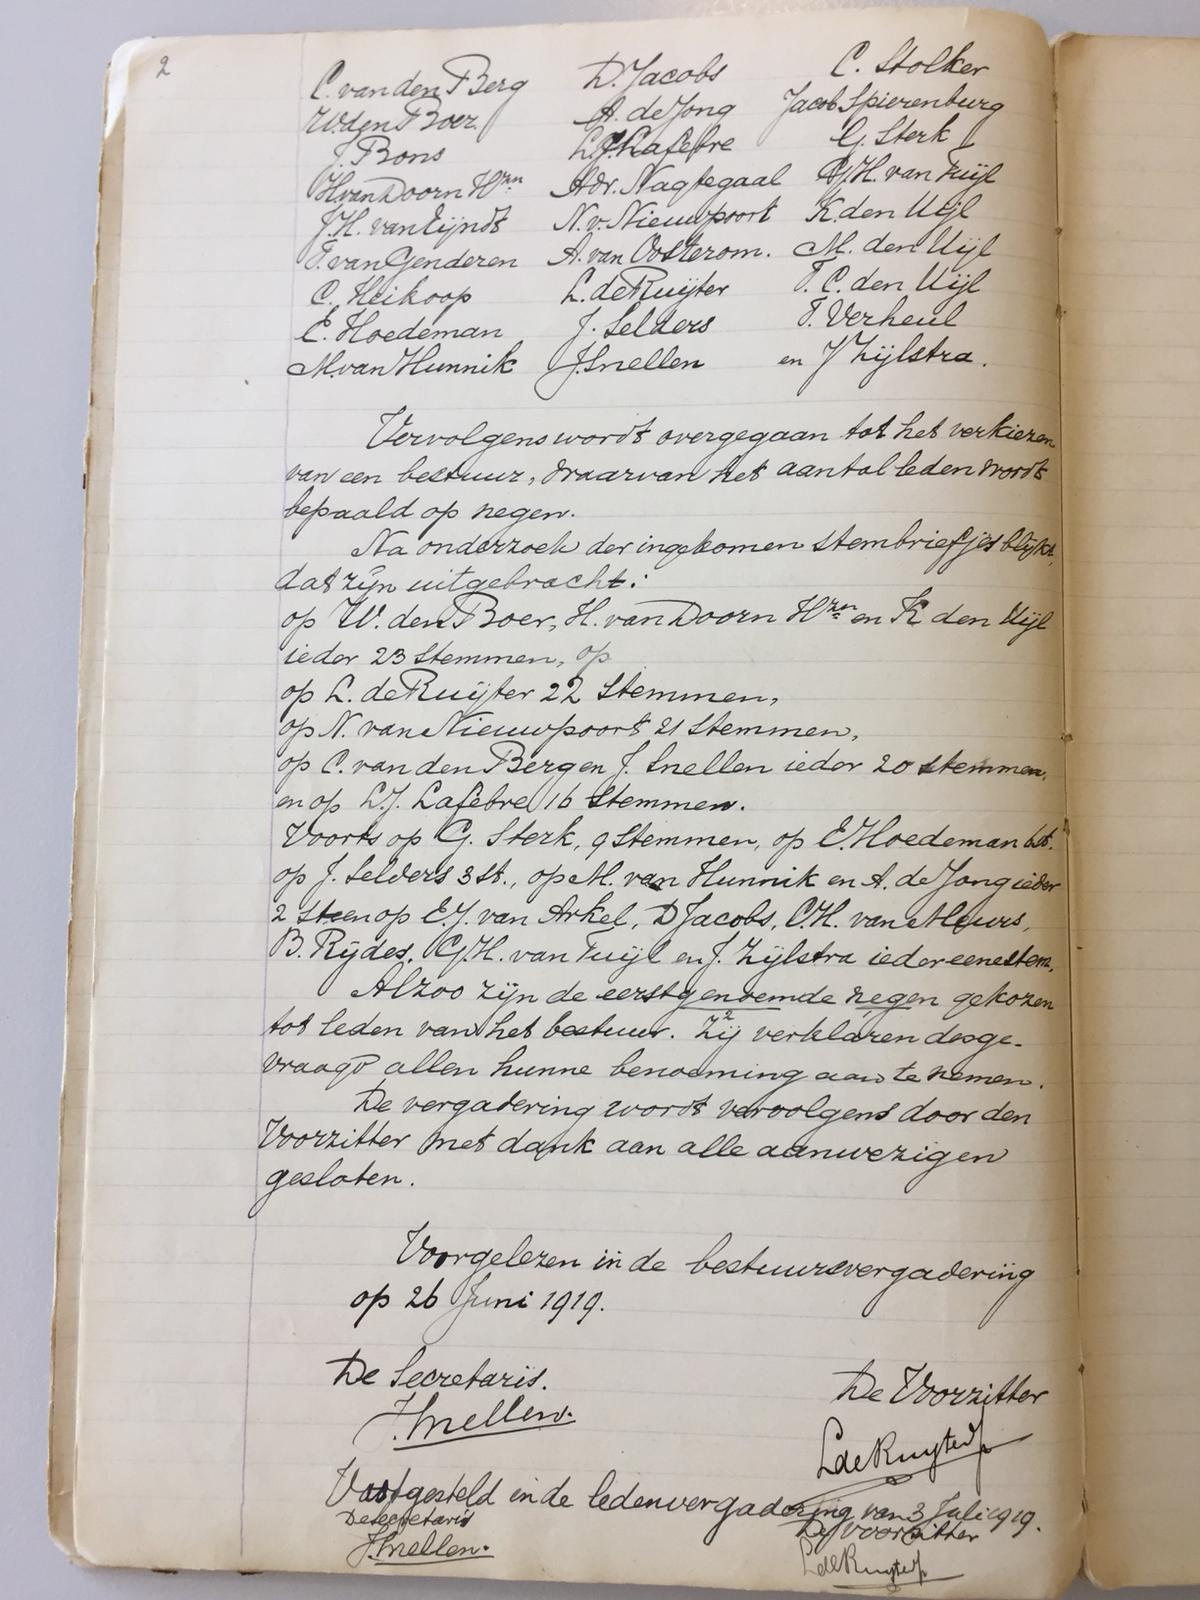 2
C. van den Berg D. Jacobs C. Stolker
W. den Boer A. de Jong Jacob Spierenburg
J. Bons L.J. Lafebre G. Sterk
H. van Doorn Hzn Adr. Nagtegaal G.H. van Tuijl
J.H. van Eijndt N. v. Nieuwpoort K. den Uijl
T. van Genderen A. van Oosterom. M. den Uijl
C. Heikoop L. de Ruijter T. C. den Uijl
E. Hoedeman J. Selders T. Verheul
M. van Hunnik J. Snellen en J Zijlstra.
Vervolgens wordt overgegaan tot het verkiezen
van een bestuur, waarvan het aantal leden wordt
bepaald op negen.
Na onderzoek der ingekomen stembriefjes blijkt,
dat zijn uitgebracht:
op W. den Boer, H. van Doorn Hzn en K den Uijl
ieder 23 stemmen, op
op L. de Ruijter 22 stemmen,
op N. van Nieuwpoort 21 stemmen,
op C. van den Berg en J. Snellen ieder 20 stemmen,
en op L.J. Lafebre 16 stemmen.
Voorts op G. Sterk, 9 stemmen, op E. Hoedeman 6 st.
op J. Selders 3 st., op M. van Hunnik en A. de Jong ieder
2 st en op E.J. van Arkel, D Jacobs, C.H. van Meurs,
B. Rijdes, G.H. van Tuijl en J. Zijlstra ieder eene stem.
Alzoo zijn de eerstgenoemde negen gekozen
tot leden van het bestuur. Zij verklaren desge-
vraagd allen hunne benoeming aan te nemen.
De vergadering wordt vervolgens door den
Voorzitter met dank aan alle aanwezigen
gesloten.
Voorgelezen in de bestuursvergadering
op 26 Juni 1919.
De Secretaris. De Voorzitter
J. Snellen. L de Ruyter
Vastgesteld in de ledenvergadering van 3 Juli 1919.
De secretaris De voorzitter
J. Snellen. L de Ruyter